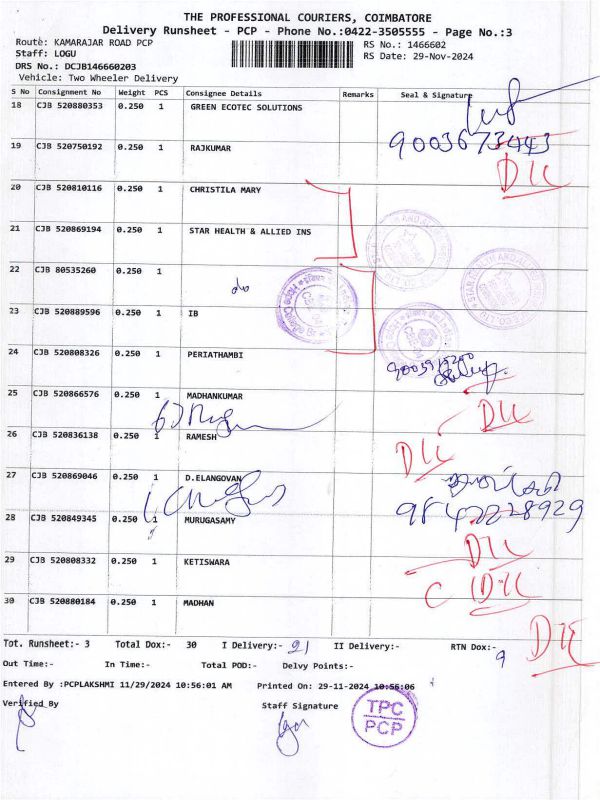 THE PROFESSIONAL COURIERS, COIMBATORE
Delivery Runsheet - PCP - Phone No.:0422-3505555 - Page No.:3
Route: KAMARAJAR ROAD PCP RS No.: 1466602
Staff: LOGU RS Date: 29-Nov-2024
DRS No.: DCJB146660203
Vehicle: Two Wheeler Delivery
S No Consignment No Weight PCS Consignee Details Remarks Seal & Signature
18 CJB 520880353 0.250 1 GREEN ECOTEC SOLUTIONS
9003673443
19 CJB 520750192 0.250 1 RAJKUMAR
DIL
20 CJB 520810116 0.250 1 CHRISTILA MARY
21 CJB 520869194 0.250 1 STAR HEALTH & ALLIED INS
22 CJB 80535260 0.250 1
23 CJB 520889596 0.250 1 IB
24 CJB 520808326 0.250 1 PERIATHAMBI
25 CJB 520866576 0.250 1 MADHANKUMAR
DIL
26 CJB 520836138 0.250 1 RAMESH
DIL
27 CJB 520869046 0.250 1 D.ELANGOVAN
9842228929
28 CJB 520849345 0.250 1 MURUGASAMY
DIL
29 CJB 520808332 0.250 1 KETISWARA
DIL
30 CJB 520880184 0.250 1 MADHAN
DIL
Tot. Runsheet:- 3 Total Dox:- 30 I Delivery:- 21 II Delivery:- RTN Dox:- 9
Out Time:- In Time:- Total POD:- Delvy Points:-
Entered By :PCPLAKSHMI 11/29/2024 10:56:01 AM Printed On: 29-11-2024 10:56:06
Verified By Staff Signature
TPC
PCP